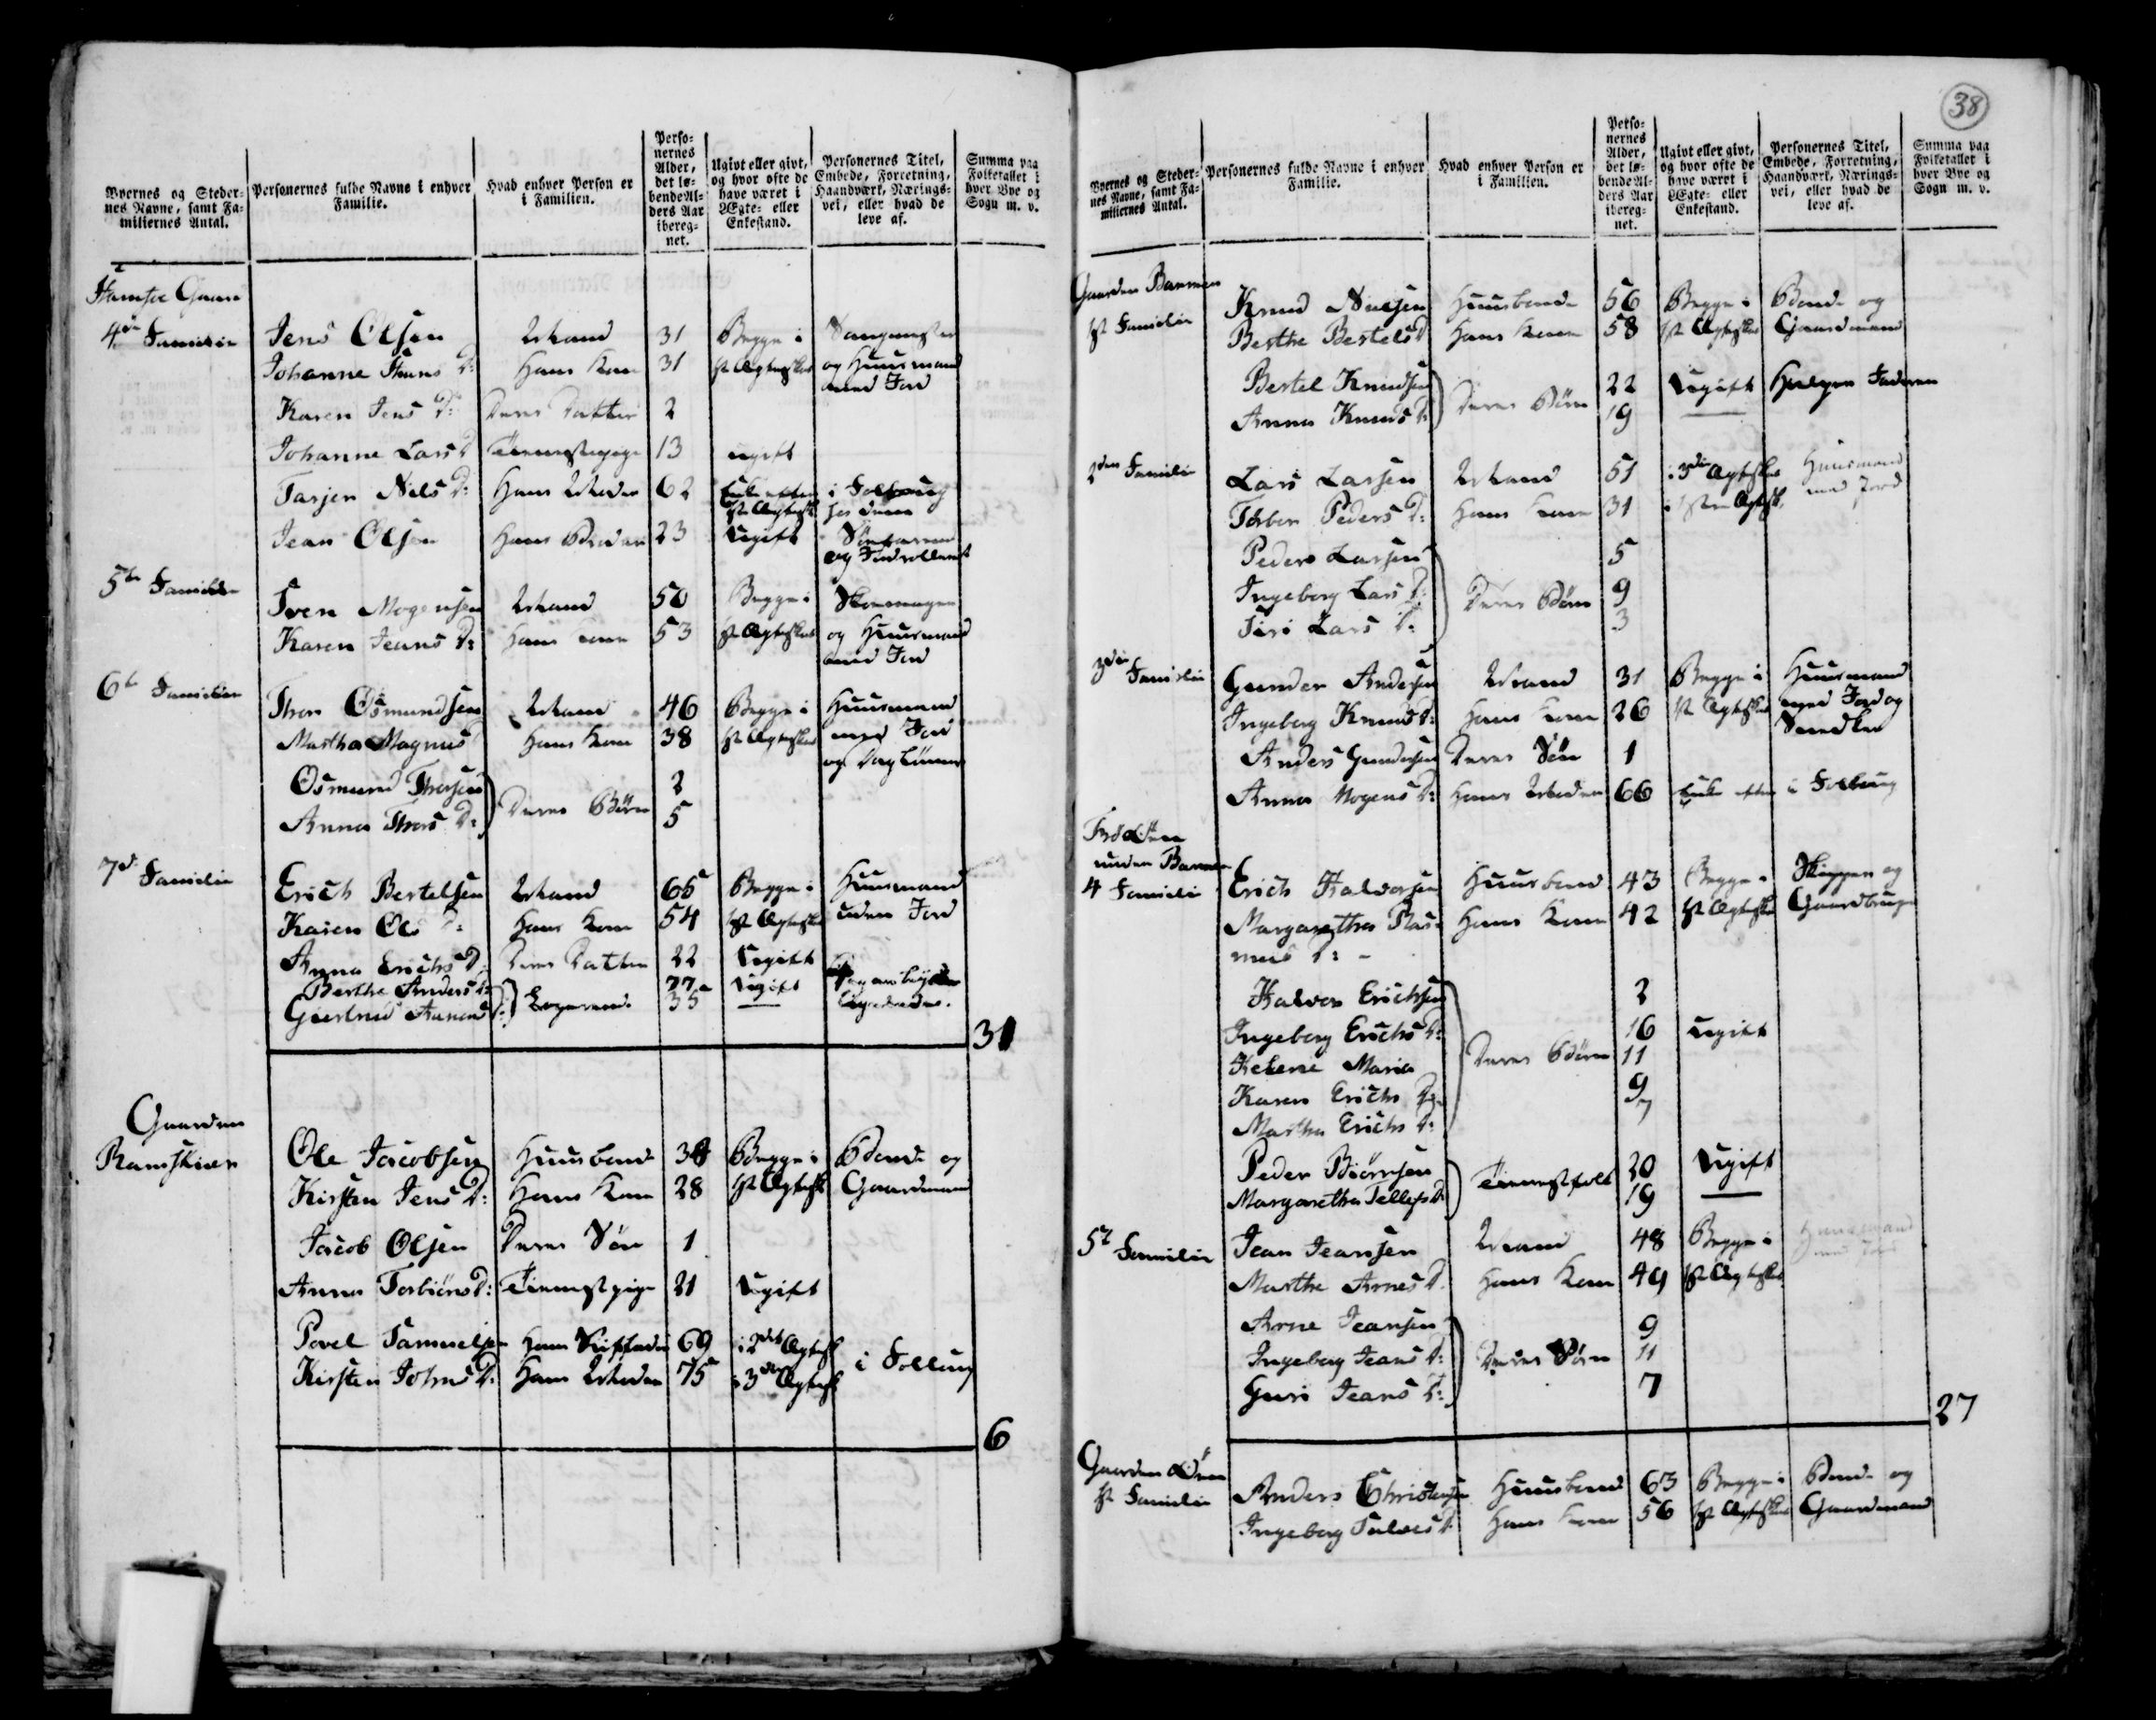 Byernes og Steder-
nes Navne, samt Fa-
miliernes Antal.
Personernes fulde Navne i enhver
Familie.
Hvad enhver Person er
i Familien.
Perso-
nernes
Alder,
det lø-
bende Al-
ders Aar
ibereg-
net.
Ugivt eller givt,
og hvor ofte de
have været i
Ægte- eller
Enkestand.
Personernes Titel,
Embede, Forretning,
Haandværk, Nærings-
vei, eller hvad de
leve af.
Summa paa
Folketallet i
hver Bye og
Sogn m. v.
4de Familie Jens Olsen Mand 31 Begge i
Johanne D: Hans Kone 31 1st Ægteskab og Huusmand
med Jord
Karen Jens D: Deres Datter 2
Johanne Lars D Tienestepige 13 ugift
Tarjer Nels D: Hans Moder 62 Enke efter i
1st Ægtesk. hos denne
Jean Olsen Hans Broder 23 Ugift
5te Familie Sven Mogensen Mand 50 Begge i
Karen Jeans D: Hans Kone 53 1st Ægteskab og Huusmand
med Jord
6te Familie Thor Osmundsen Mand 46 Begge i Huusmand
Martha Magnus Hans Kone 38 1st Ægteskab med Jord
og
Osmund Thorsen 2
Anna Thors D: Deres Børn 5
7de Familie Erich Bertelsen Mand 65 Begge i Huusmand
Karen Ols D: Hans Kone 54 1st Ægteskab uden Jord
Anna Erichs D: Deres Datter 22 Ugift
Berthe Anders D: 77 Ugift
Giertrud D: Logerende 35
31
Gaarden
Ramskiær Ole Jacobsen Huusbond 38 Begge i Bonde og
Kirsten Jens D: Hans Kone 28 1st Ægtesk Gaardmand
Jacob Olsen Deres Søn 1
Anna Torbiørns D: Tienestpige 21 Ugift
Povel Samuelsen Hans Stiffader 69 i 2det Ægtesk
Kirsten Johns D: Hans Moder 75 i 3die Ægtesk i Follaug
6
38
Byernes og Steder-
nes Navne, samt Fa-
miliernes Antal.
Personernes fulde Navne i enhver
Familie.
Hvad enhver Person er
i Familien.
Perso-
nernes
Alder,
det lø-
bende Al-
ders Aar
ibereg-
net.
Ugivt eller givt,
og hvor ofte de
have været i
Ægte- eller
Enkestand.
Personernes Titel,
Embede, Forretning,
Haandværk, Nærings-
vei, eller hvad de
leve af.
Summa paa
Folketallet i
hver Bye og
Sogn m. v.
Gaarden Barmen
1st Familie Knud Nielsen Huusbonde 56 Begge i Bonde og
Berthe Bertels D Hans Kone 58 1st Ægteskab Gaardmand
Bertel Knudsen 22 Ugift Hielper Faderen
Anna Knuds D: Deres Børn 19
2den Familie Lars Larsen Mand 51 i 3die Ægteskab Huusmand
med Jord
Torbor Peders D: Hans Kone 31 i 1ste Ægtesk.
Peder Larsen 5
Ingeborg Lars D: Deres Børn 9
Siri Lars D: 3
3die Familie Gunder Andersen Mand 31 Begge i Huusmand
Ingeborg Knuds D: Hans Kone 26 1st Ægteskab med Jord og
Anders Gundersen Deres Søn 1
Anna Mogens D: Hans Moder 66 Enke efter i
under Barmen
4 Familie Erich Halvorsen Huusbond 43 Begge i Skipper og
Margaretha Ras- Hans Kone 42 1st Ægteskab Gaardbruger
mus D: -
Halvor Erichsen 2
Ingeborg Erichs D: 16 Ugift
Helene Maria Deres Børn 11
Karen Erichs D: 9
Martha Erichs D: 7
Peder Biørnsen 20 Ugift
Margaretha Tellefs D: Tienestfolk 19
5te Familie Jean Jeansen Mand 48 Begge i Huusmand
med Jord
Marthe Arnes D. Hans Kone 49 1st Ægteskab
Arne Jeansen 9
Ingeborg Jeans D: Deres Børn 11
Guri Jeans D: 7
27
Gaarden
1st Familie Anders Christensen Huusbond 63 Begge i Bonde og
Ingeborg D: Hans Kone 56 1st Ægteskab Gaardmand